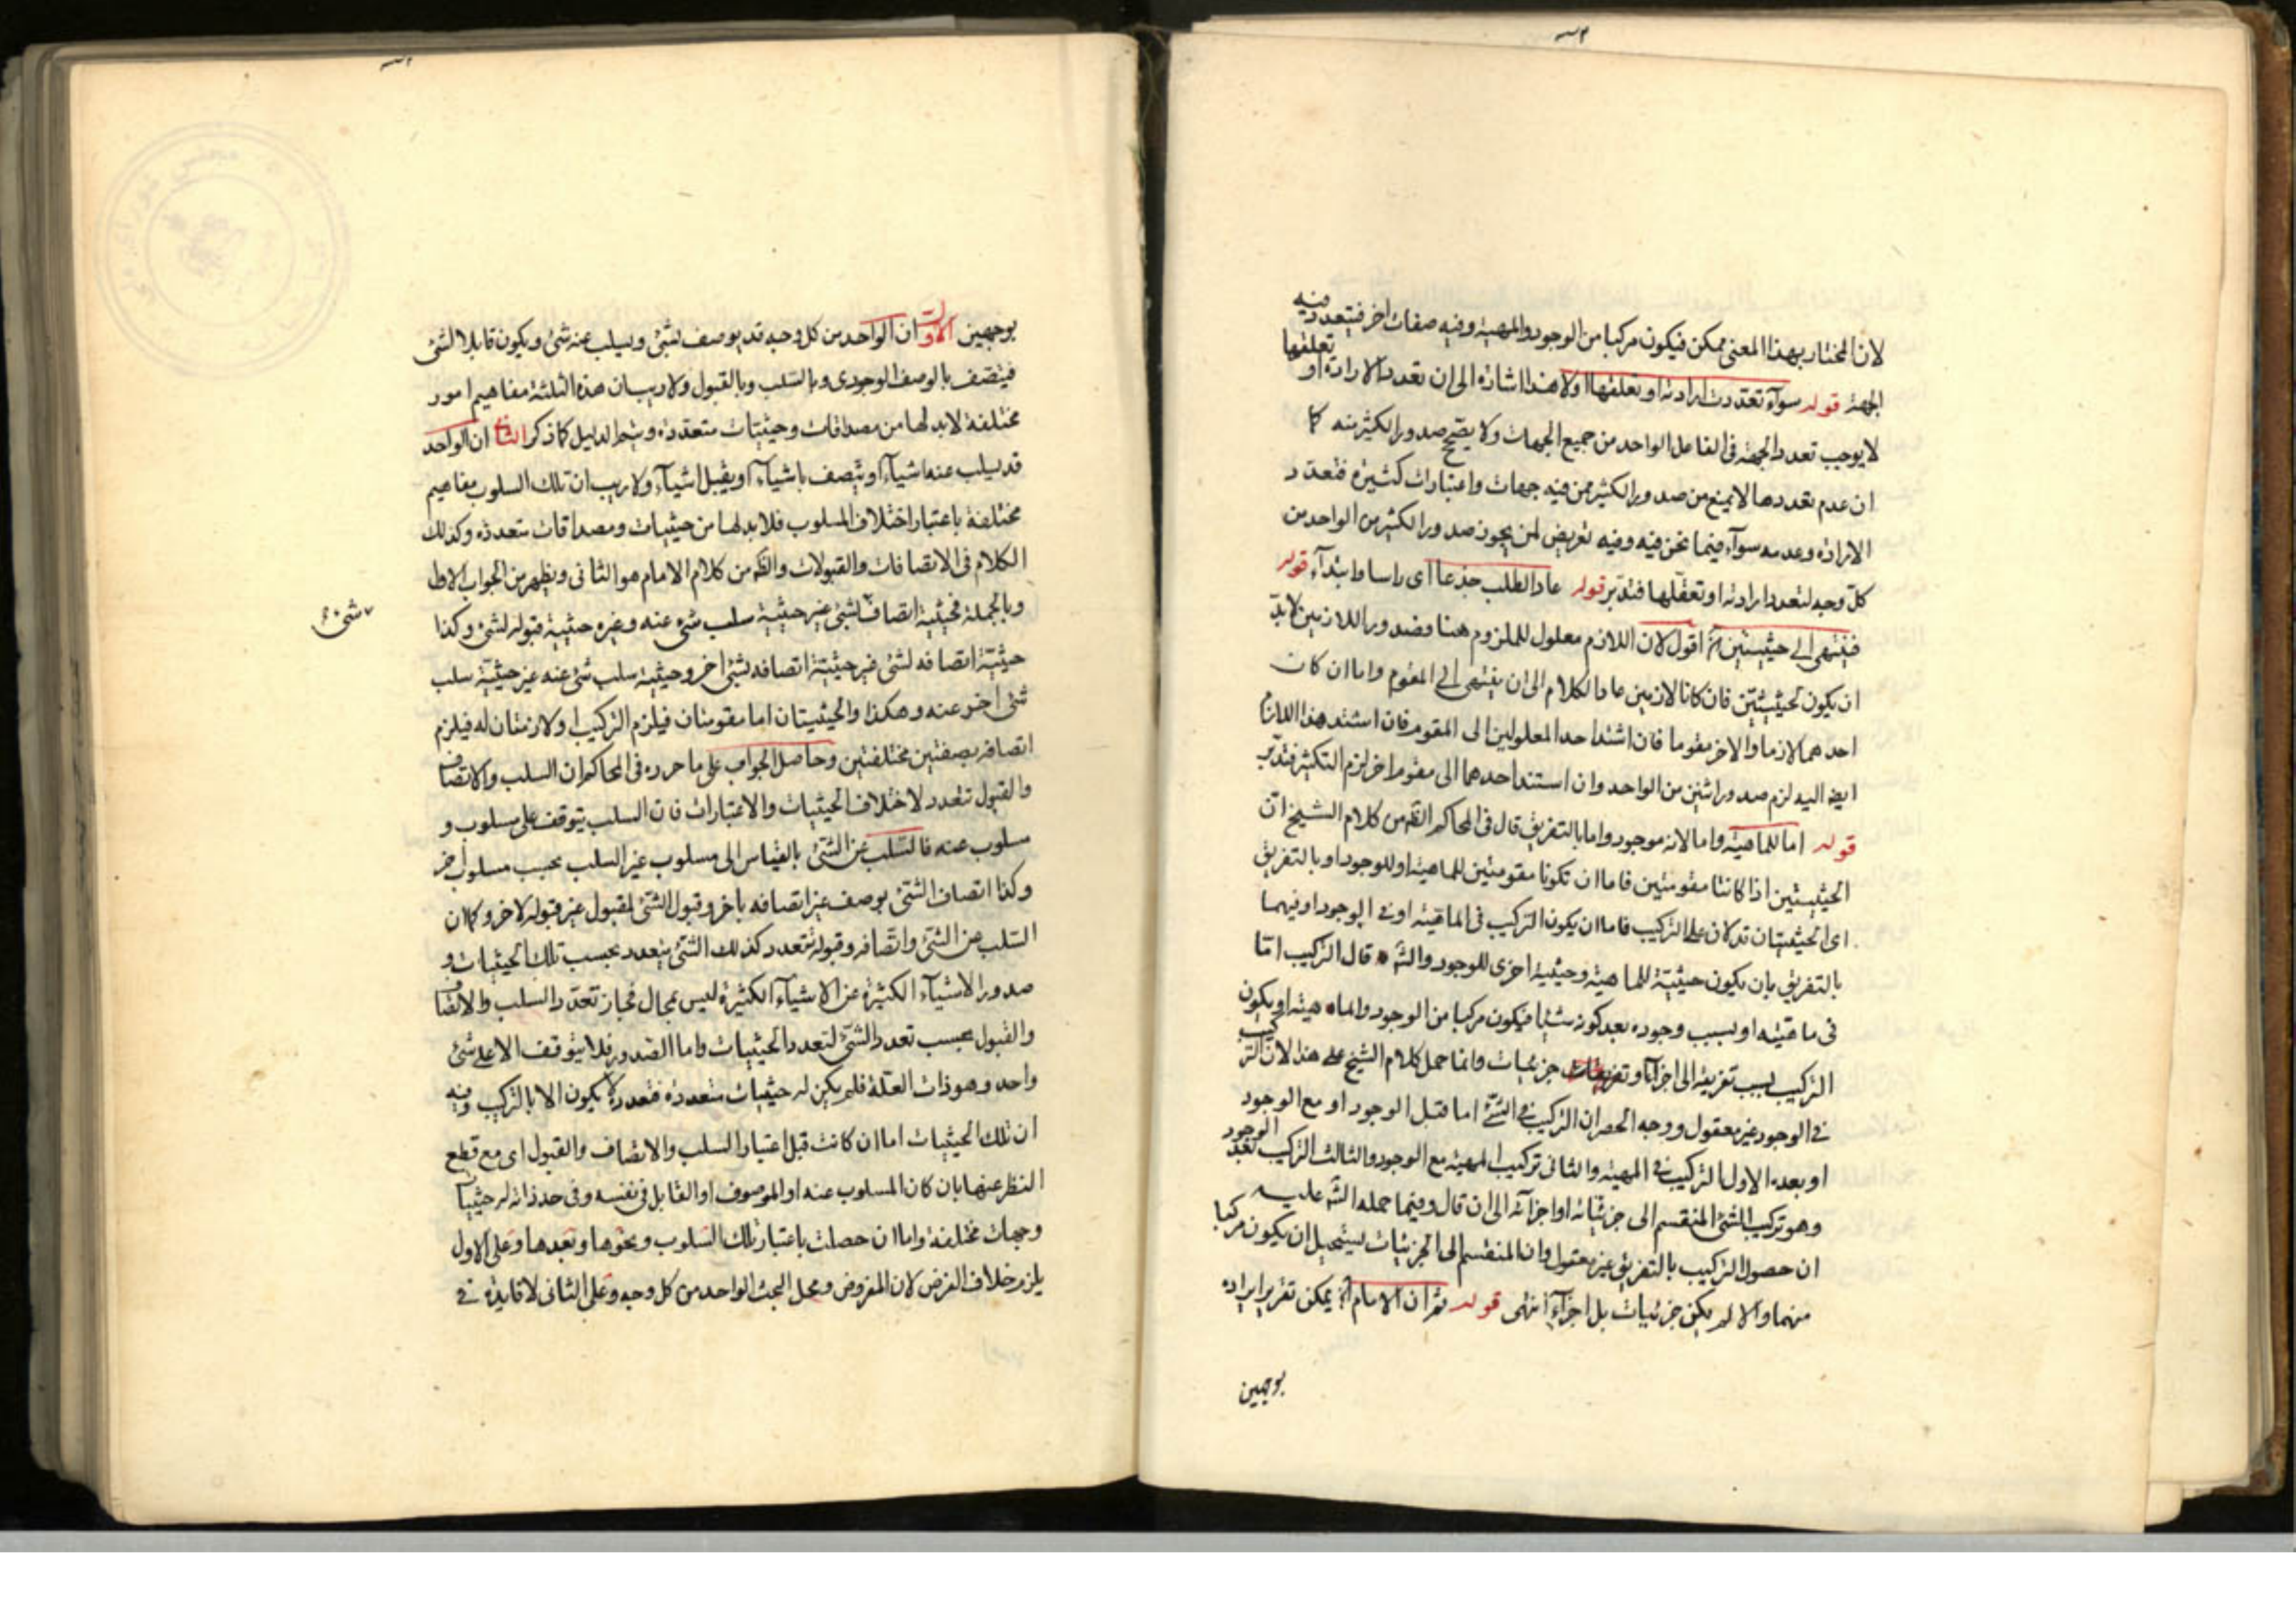 لان المختار بهذا المعنى ممكن فيكون مركبا من الوجود والمهية وفيه صفات اخر فيتعدد فيه
الجهة قوله سوآء تعددت ارادته او تعلقها اولا هذا اشارة الى ان تعدد الارادة او تعلقها
لا يوجب تعدد الجهة فى الفاعل الواحد من جميع الجهات ولا يصحح صدور الكثير منه كما
ان عدم تعددها لا يمنع من صدور الكثير ممن فيه جهات واعتبارات كثيرة فتعدد
الارادة وعدمه سوآء فيما نحن فيه وفيه تعريض لمن يجوز صدور الكثير من الواحد من
كل وجه لتعدد ارادته او تعقلها فتدبر قوله عاد الطلب جذعا اى راسا وابتدآء قوله
فينتهى الى حيثيتين آه اقول لان اللازم معلول للملزوم هنا وصدور اللازمين لا بد
ان يكون لحيثيتين فان كانا لازمين عاد الكلام الى ان ينتهى الى المقوم واما ان كان
احدهما لازما والاخر مقوما فان استند احد المعلولين الى المقوم فان استند هذا اللازم
ايضا اليه لزم صدور اثنين من الواحد وان استند احدهما الى مقوم اخر لزم التكثر فتدبر
قوله اما للماهية واما لانه موجود واما بالتفريق قال فى المحاكم الظ من كلام الشيخ ان
الحيثيتين اذا كانتا مقومتين فاما ان تكونا مقومتين للماهية او للوجود او بالتفريق
اى الحيثيتان تدلان على التركيب فاما ان يكون التركيب فى الماهية او فى الوجود او فيهما
بالتفريق بان يكون حيثية للماهية وحيثية اخرى للوجود والش قال التركيب اما
فى ماهيته او بسبب وجوده بعد كونه شيئا فيكون مركبا من الوجود والماهية او يكون
التركيب بسبب تفريقه الى اجزآء او تفريقات جزئيات وانما حمل كلام الشيخ على هذا لان التركيب
فى الوجود غير معقول ووجه الحصر ان التركيب فى الشئ اما قبل الوجود او مع الوجود
او بعده الاول التركيب فى المهية والثانى تركيب المهية مع الوجود والثالث التركيب بعد الوجود
وهو تركيب الشئ المنقسم الى جزئياته او اجزآئه الى ان قال وفيما حمله الش عليه
ان حصول التركيب بالتفريق غير معقول وان المنقسم الى الجزئيات يستحيل ان يكون مركبا
منهما والا لم يكن جزئيات بل اجزآء انتهى قوله ثم ان الامام آه يمكن تقرير ايراده
بوجهين
بوجهين الاول ان الواحد من كل وجه قد يوصف بشئ ويسلب عنه شئ ويكون قابلا لشئ
فيتصف بالوصف الوجودى وبالسلب وبالقبول ولا ريب ان هذه الثلثة مفاهيم امور
مختلفة لابد لها من مصداقات وحيثيات متعددة ويتم الدليل كما ذكر الثانى ان الواحد
قد يسلب عنه اشيآء او يتصف باشيآء او يقبل اشيآء ولا ريب ان تلك السلوب مفاهيم
مختلفة باعتبار اختلاف المسلوب فلا بد لها من حيثيات ومصداقات متعددة وكذلك
الكلام فى الاتصافات والقبولات والظ من كلام الامام هو الثانى ويظهر من الجواب الاول
وبالجملة فحيثية اتصاف لشئ غير حيثية سلب شئ عنه وغيره حيثية قبوله لشئ وكذا
حيثية اتصافه لشئ غير حيثية اتصافه بشئ اخر وحيثية سلب شئ عنه غير حيثية سلب
شئ اخر عنه وهكذا والحيثيتان اما مقومتان فيلزم التركيب او لازمتان له فيلزم
اتصافه بصفتين مختلفتين وحاصل الجواب على ما حرره فى المحاكم ان السلب والاتصاف
والقبول تتعدد لاختلاف الحيثيات والاعتبارات فان السلب يتوقف على مسلوب و
مسلوب عنه فالسلب عن الشئ بالقياس الى مسلوب غير السلب بحسب مسلوب اخر
وكذا اتصاف الشئ بوصف غير اتصافه باخر وقبول الشئ لمقبول غير قبوله لاخر وكما ان
السلب عن الشئ واتصافه وقبوله تتعدد كذلك الشئ يتعدد بحسب تلك الحيثيات و
صدور الاشيآء الكثيرة عن الاشيآء الكثيرة ليس بمحال فجاز تعدد السلب والاتصاف
والقبول بحسب تعدد الشئ لتعدد الحيثيات واما الصدور فلا يتوقف الا على شئ
واحد وهو ذات العلة فلم يكن له حيثيات متعددة فتعدده لا يكون الا بالتركيب وفيه
ان تلك الحيثيات اما ان كانت قبل اعتبار السلب والاتصاف والقبول اى مع قطع
النظر عنها بان كان المسلوب عنه او الموصوف او القابل فى نفسه وفى حد ذاته له حيثيات
وجهات مختلفة واما ان حصلت باعتبار تلك السلوب ونحوها وبعدها وعلى الاول
يلزم خلاف الفرض لان المفروض ومحل البحث الواحد من كل وجه وعلى الثانى لا فايدة فى